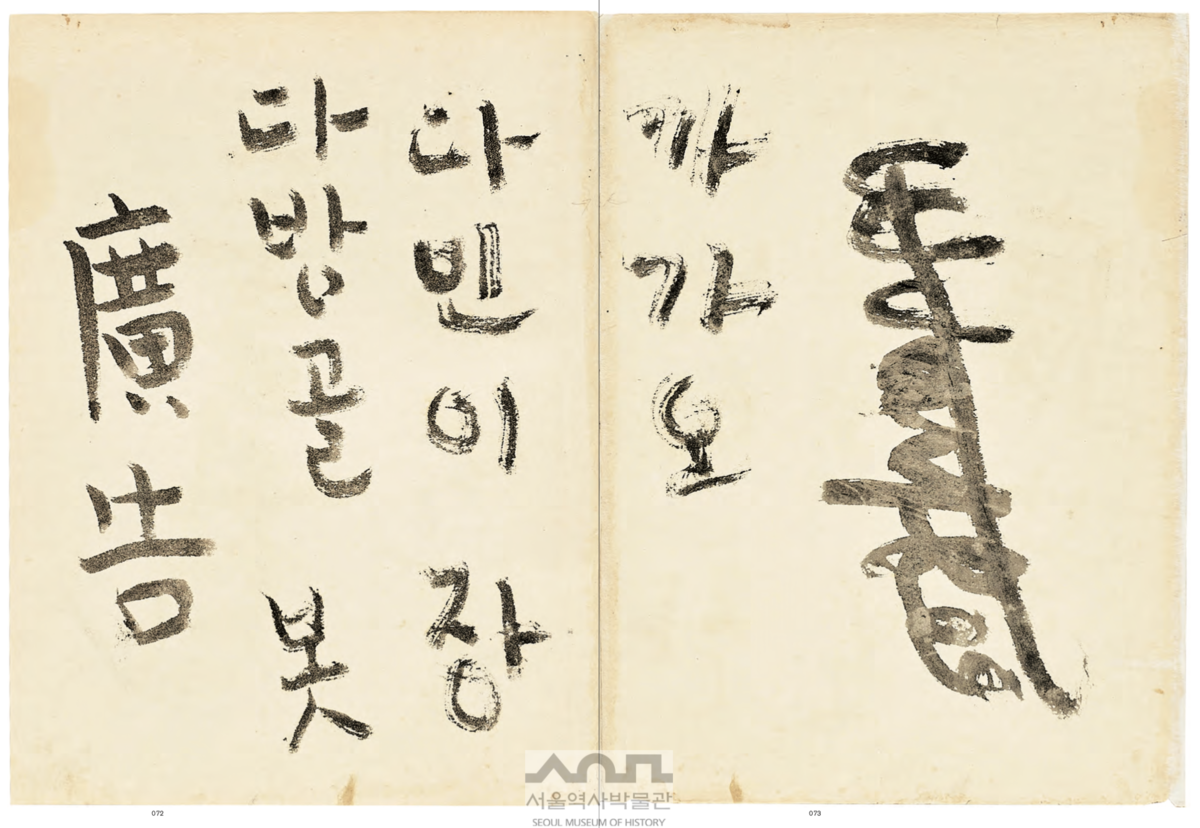 廣告
다방골 봇
다빈이 장
까가오
072
073
서울역사박물관
SEOUL MUSEUM OF HISTORY